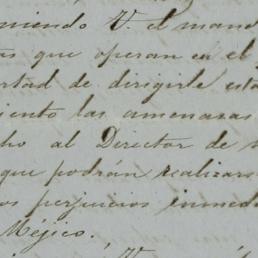 niendo V. el mand
as que operan en el
rtad de dirigirle esta
iento las amenazas
ho al Director de
que podrán realizars
os perjuicios inmed
Méjico.